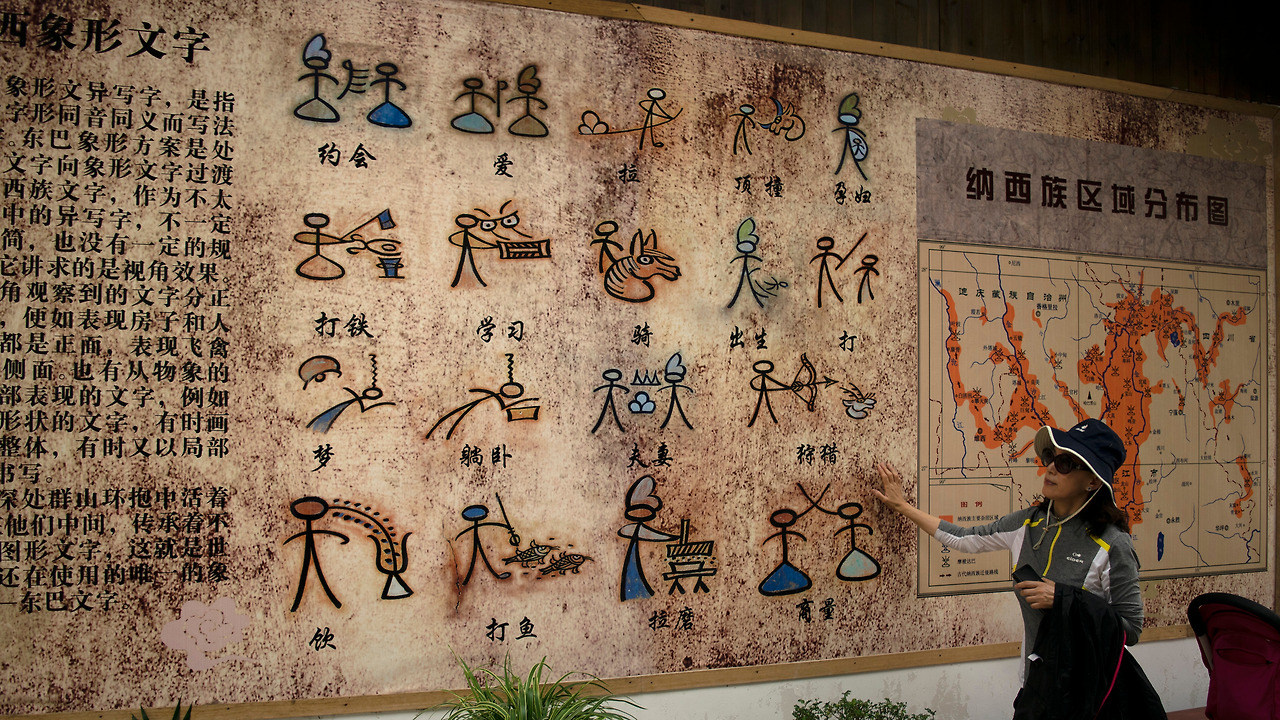 西象形文字
象形文异写字，是指
字形同音同义而写法
。东巴象形方案是处
文字向象形文字过渡
西族文字，作为不太
中的异写字，不一定
简，也没有一定的规
它讲求的是视角效果
角观察到的文字分正
，便如表现房子和人
都是正面，表现飞禽
侧面。也有从物象的
部表现的文字，例如
形状的文字，有时画
整体，有时又以局部
书写。
深处群山环抱中活着
他们中间，传承着不
图形文字，这就是世
还在使用的唯一的象
—东巴文字。
约会 爱 拉 顶撞 孕妇
打铁 学习 骑 出生 打
梦 躺卧 夫妻 狩猎
饮 打鱼 拉磨 商量
纳西族区域分布图
迪庆藏族自治州
香格里拉
四川省
图例